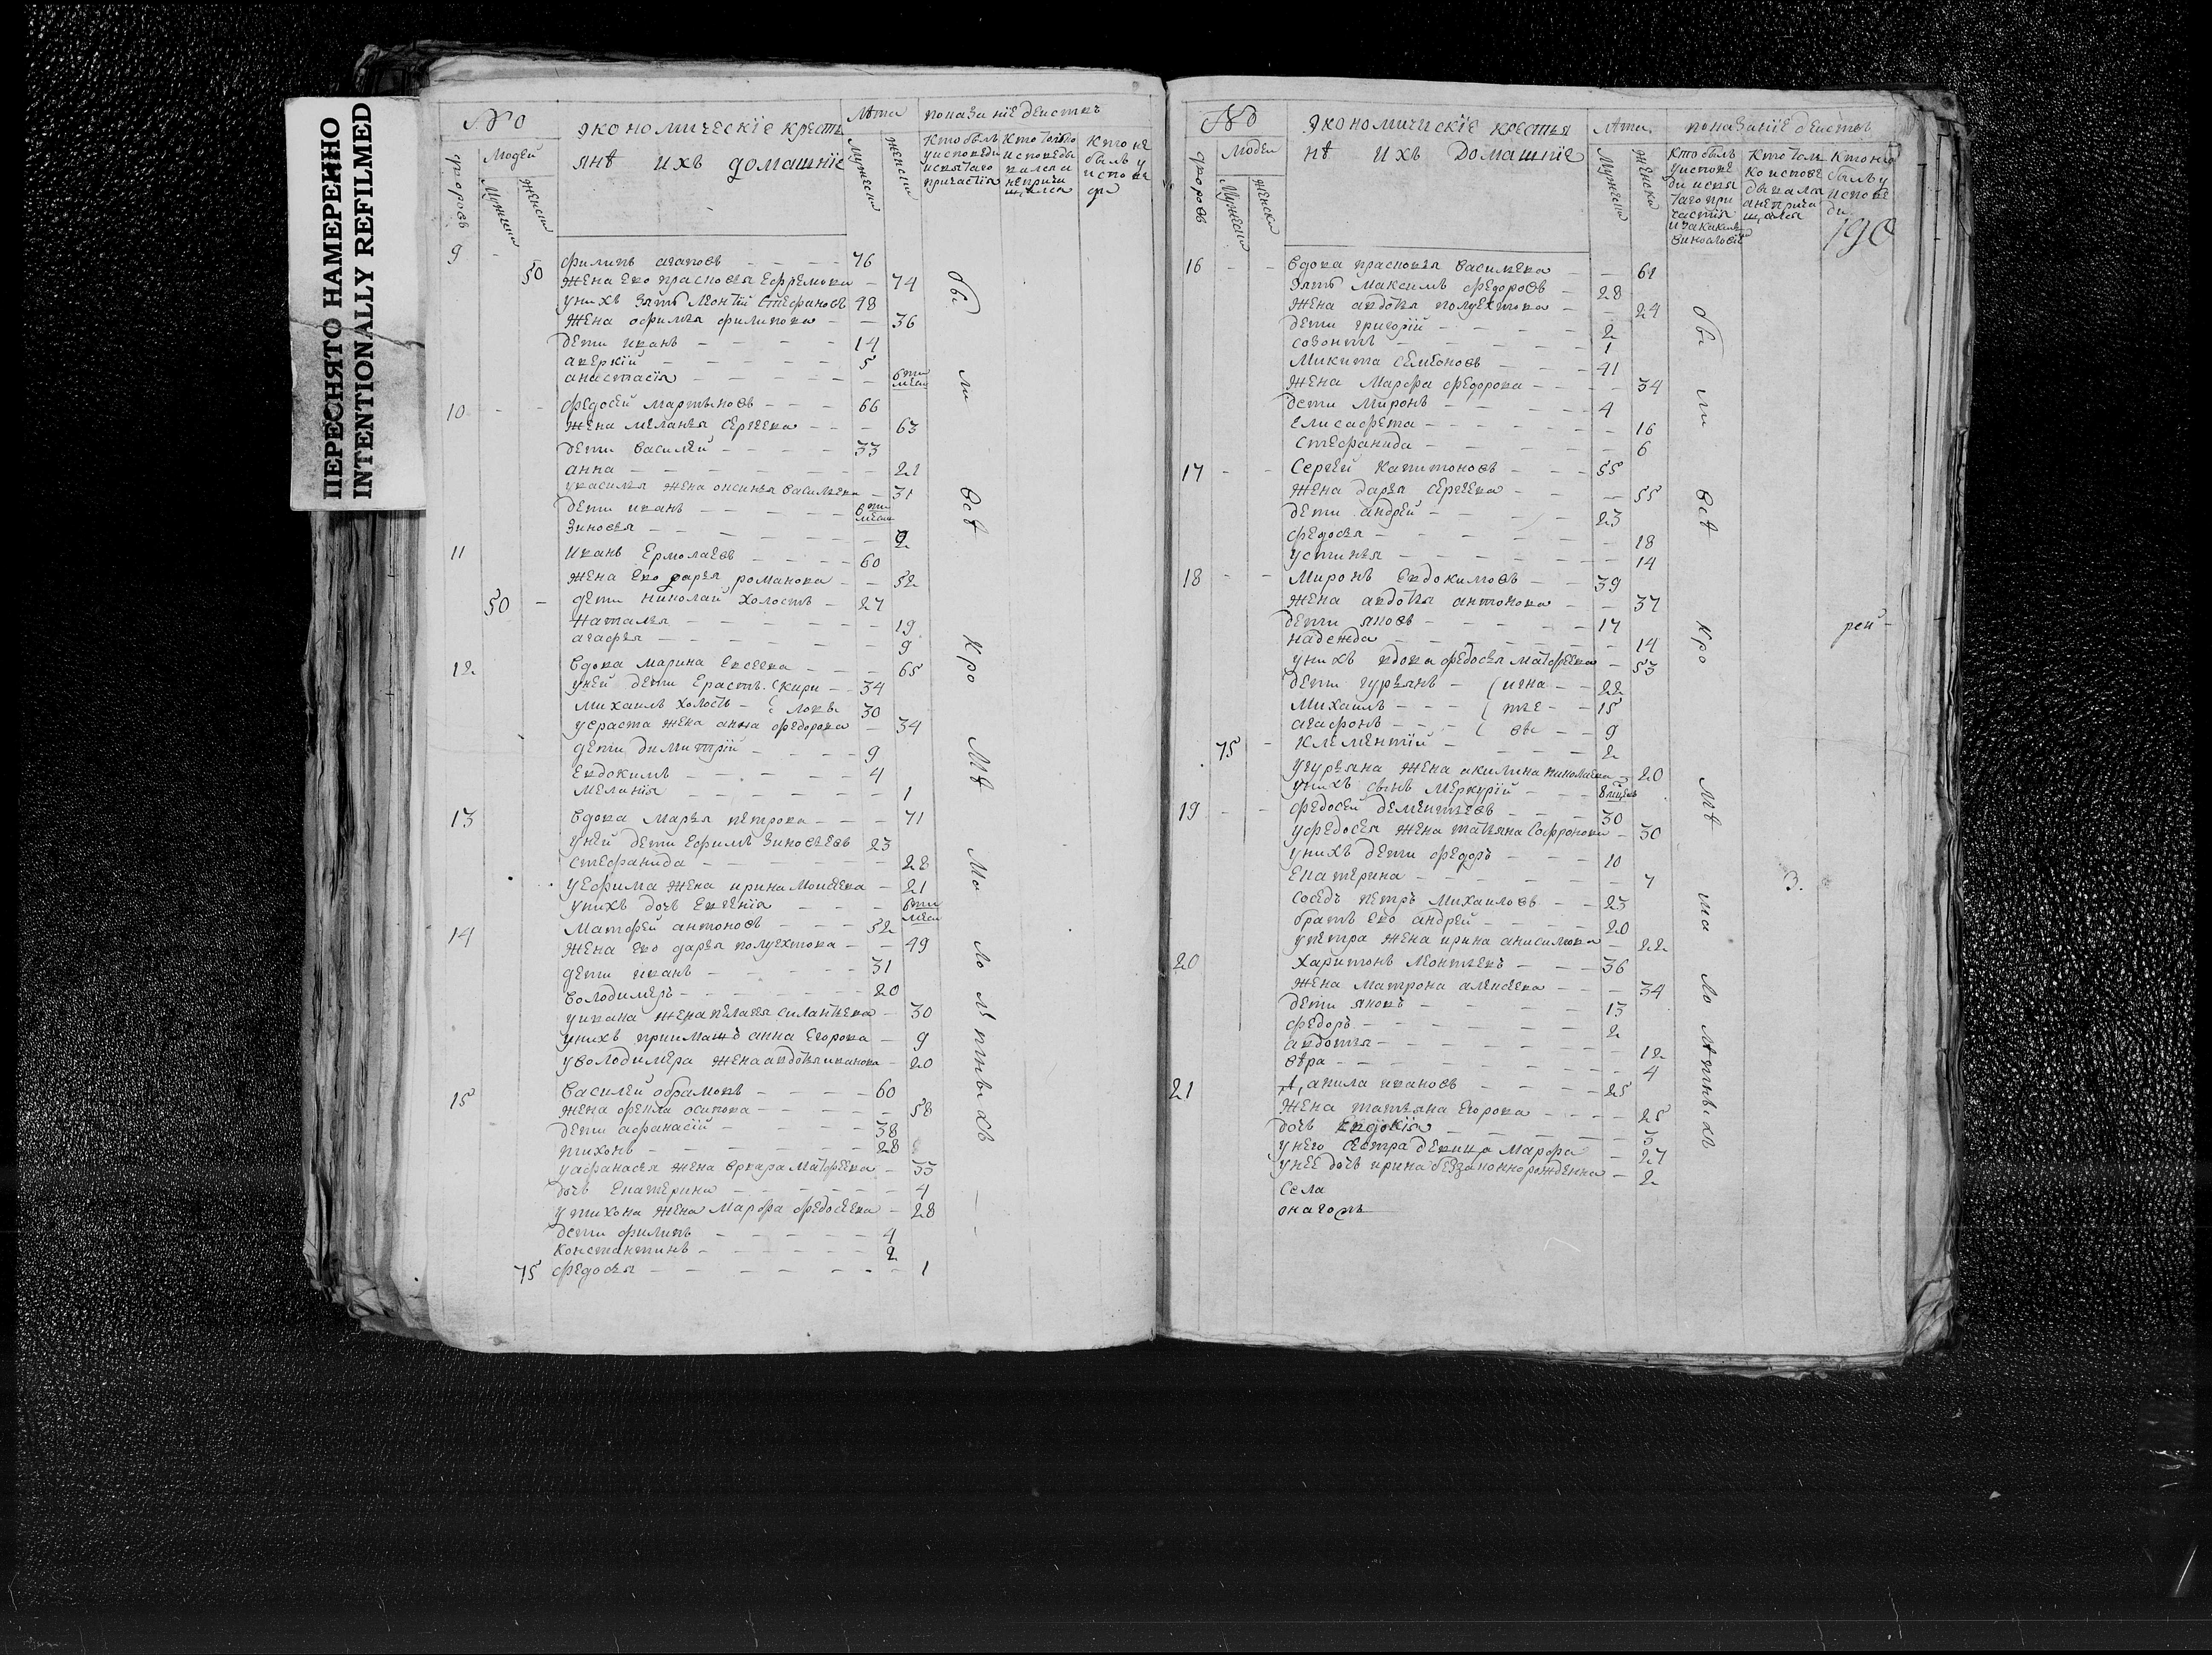 ПЕРЕСНЯТО НАМЕРЕННО
INTENTIONALLY REFILMED
№
дворовъ
Людей
Мужеска
Женска
экономическiе кресть
янѣ ихъ домашнiе
Лѣта
Мужеска
Женска
показанiе действъ
Кто былъ
у исповеди
и святаго
причастiя
Кто только
исповеды
вался а
не прича
щался
Кто не
былъ у
испове
ди
9 - филипъ агаповъ - - - 76
50 жена ево прасковья Ефремова - 74
у нихъ зять Леонтiй Стефановъ 48
Жена офимья филипова - - 36
дети иванъ - - - - 14
аверкiй - - - - - 5
анастасiя - - - - - 6ти меся
10 - - федосѣй мартыновъ - - - 66
жена меланья сергеева - - - 63
дети василѣй - - - - 33
анна - - - - - - 22
у василья жена оксинья васильева - 31
дети иванъ - - - - - 6ти меся
зиновья - - - - - 2
11 иванъ Ермолаевъ - - - - 60
жена ево дарья романова - - 52
50 - дети николай холостъ - 27
Наталья - - - - - - 19
агафья - - - - - - 9
12 вдова марина Евсеева - - - 65
у ней дети Ерастъ ( кири - - 34
михаилъ холостъ - ( ловы 30
у ераста жена анна федорова - 34
дети димитрiй - - - - 9
Евдокимъ - - - - - - 4
меланiя - - - - - - - 1
13 вдова марья петрова - - - 71
у ней дети Ефимъ зиновьевъ 23
стефанида - - - - - - 28
у ефима жена ирина Моисеева - 21
у нихъ дочь Евгенiя - - - 6ти меся
14 Матфей антоновъ - - - 52
жена ево дарья полуехтова - - 49
дети иванъ - - - - - 31
володимеръ - - - - - - 20
у ивана жена пелагея силантьева - 30
у нихъ приимашъ анна Егорова - 9
у володимера жена авдотья иванова - 20
15 василѣй обрамовъ - - - - 60
жена фекла осипова - - - - 58
дети афанасiй - - - - - 38
тихонъ - - - - - - 28
у афанасья жена варвара Матфеева - 33
дочь Екатерина - - - - - 4
у тихона жена марфа федосеева - 28
дети филипъ - - - - - 4
константинъ - - - - - 2
75 федосья - - - - - - 1
бы
ли
всѣ
кро
мѣ
ма
ло
лѣ
тныхъ
№
дворовъ
Людей
Мужеска
Женска
экономическiе крестья
нѣ ихъ домашнiе
Лѣта
Мужеска
Женска
показанiе действъ
Кто былъ
у испове
ди и свя
таго при
частiя
Кто толь
ко испове
дывался
а не прича
щался
и за какимъ
винословiемъ
Кто не
былъ у
испове
ди
190
16 - - вдова прасковья васильева - - 61
зять Максимъ федоровъ - 28
жена авдотья полуехтова - - 24
дети григорiй - - - - - 2
созонтъ - - - - - - 1
Микита семеоновъ - - - 41
жена Марфа федорова - - - 34
дети миронъ - - - - 4
елисафета - - - - - - 16
стефанида - - - - - - 6
17 - - Сергѣй капитоновъ - - - 55
жена дарья сергеева - - - 55
дети андрѣй - - - - 23
федосья - - - - - - 18
устинья - - - - - - 14
18 - - Миронъ Евдокимовъ - - 39
жена авдотья антонова - - 37
дети яковъ - - - - - 17
надежда - - - - - - 14
у нихъ вдова федосья матфеева - 53
дети гурьянъ - ( игна - - 22
Михаилъ - - - ( тье - - 15
агафонъ - - - ( вы - - 9
75 - Климентiй - - - - - 2
у гурьяна жена акилина николаева - 20
у нихъ сынъ Меркурiй - - - 8 месцевъ
19 - - федосѣй дементьевъ - - - 30
у федосья жена татьяна софронова - 30
у нихъ дети федоръ - - - 10
Екатерина - - - - - - 7
соседъ петръ Михаиловъ - - 23
братъ ево андрей - - - - 20
у петра жена ирина анисимова - 22
20 харитонъ леонтьевъ - - - 36
жена матрона алексеева - - - 34
дети яковъ - - - - - 13
федоръ - - - - - - - 2
авдотья - - - - - - 12
вѣра - - - - - - - 4
21 данила ивановъ - - - - 25
жена татьяна Егорова - - - - 25
дочь Евдокiя - - - - - 3
у него сестра девица Марфа - 27
у нее дочь ирина беззаконнорожденна - 2
села
бы
ли
всѣ
кро
мѣ
ма
ло
лѣтныхъ
рей -
3.